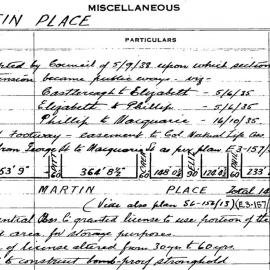 MISCELLANEOUS
TIN PLACE
PARTICULARS
pted by Council of 5/9/38 upon which section
ension became public ways - viz
Castlereagh to Elizabeth - 5/6/35
Elizabeth to Phillip - 5/6/35
Phillip to Macquarie - 16/10/35
Footway - easement to Col. Mutual Life Ass
from George St to Macquarie St as per plan E3-157/
53' 9" 364' 8½" 233'
MARTIN PLACE Total 14
(Vide also plan S6-158/13) (E3-157/
ential Ass C. granted license to use portion of the
e area for storage purposes.
of license altered from 30 yrs to 60 yrs.
to construct bomb-proof stronghold